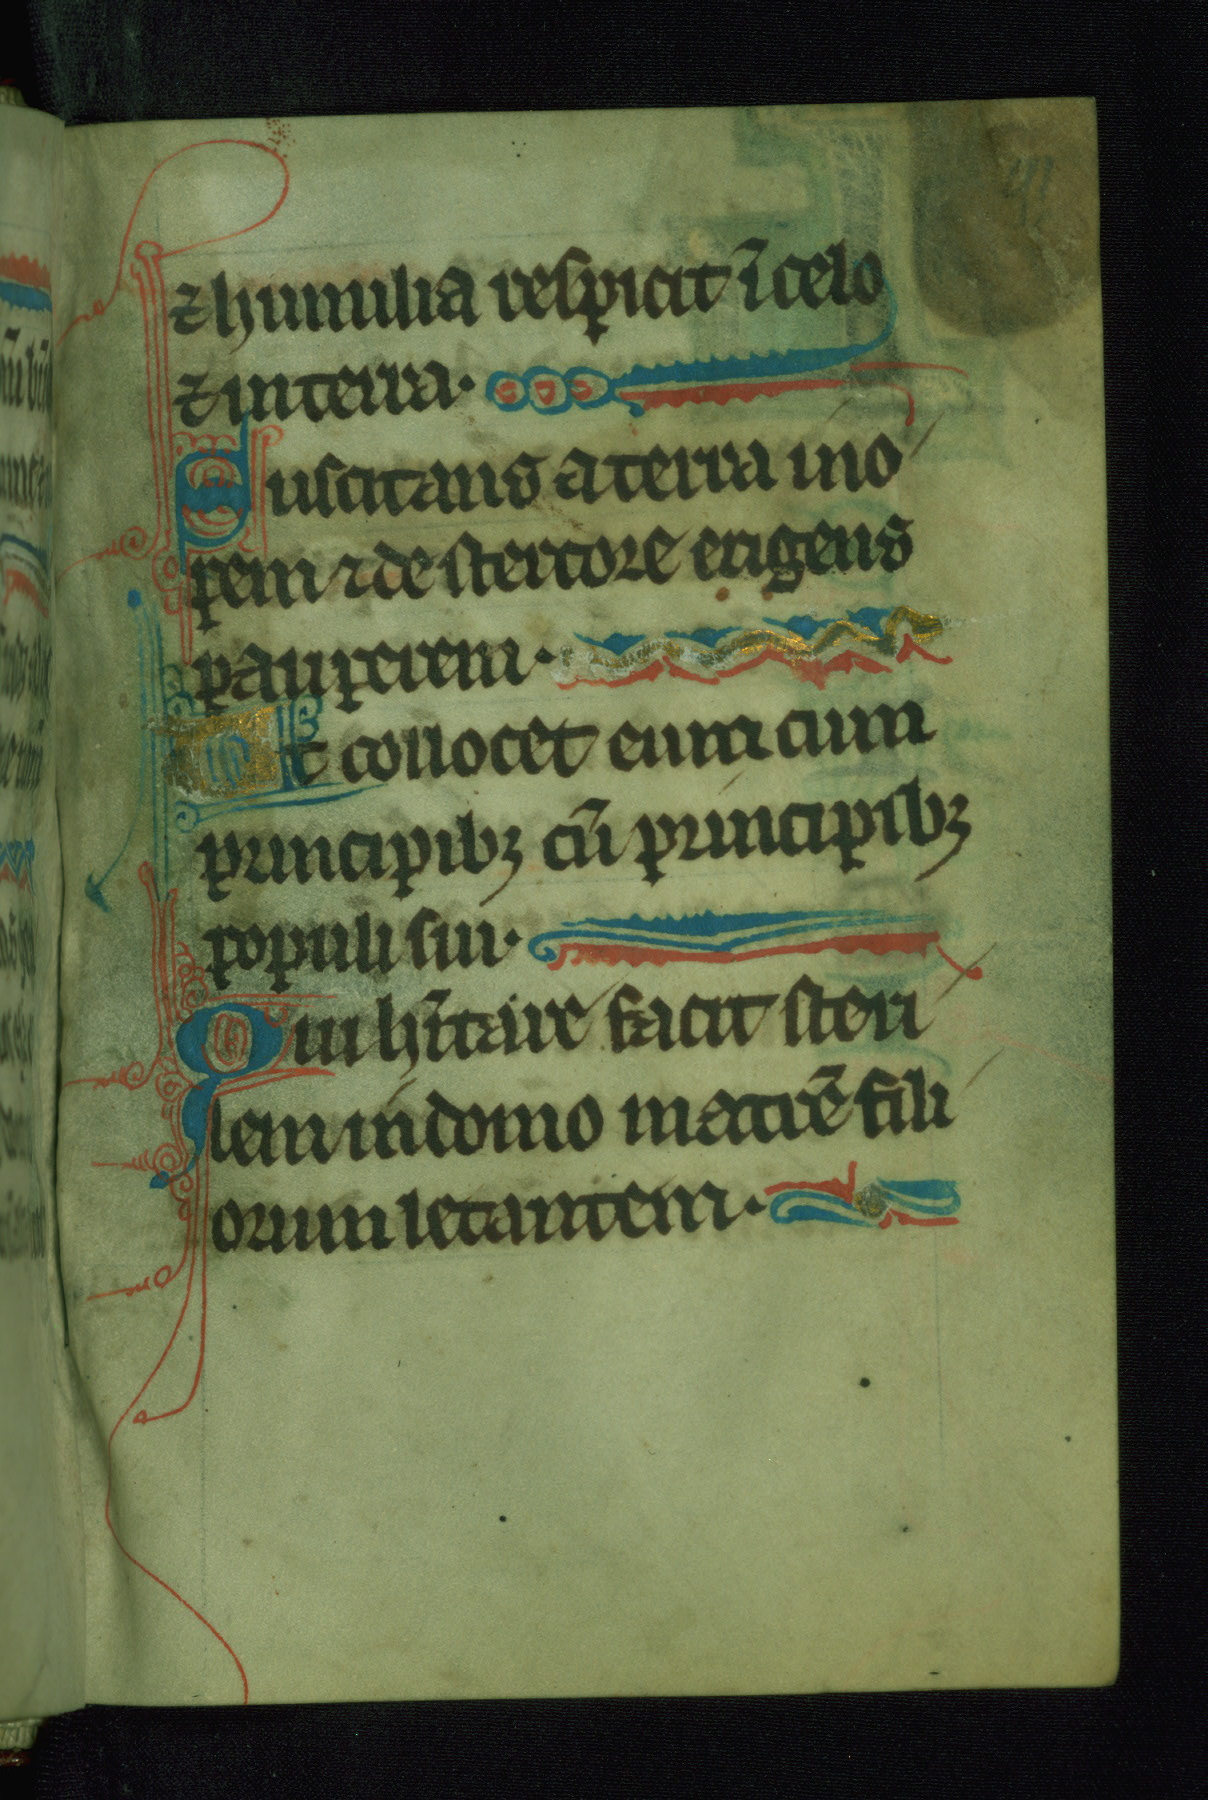 ⁊ humilia respicit ī celo
⁊ in terra·
Suscitans a terra ino
pem ⁊ de stercore erigens
pauperem·
Ut collocet eum cum
principibꝫ cū principibꝫ
populi sui·
Qui hītare facit steri
lem in domo matrē fili
orum letantem·